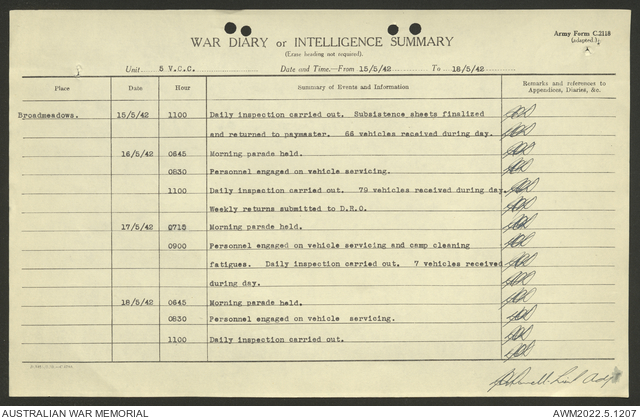 Army Form C.2118
(adapted.)
WAR DIARY or INTELLIGENCE SUMMARY
(Erase heading not required).
Unit 5 V.C.C. Date and Time.—From 15/5/42 To 18/5/42
Place Date Hour Summary of Events and Information Remarks and references to
Appendices, Diaries, &c.
Broadmeadows. 15/5/42 1100 Daily inspection carried out. Subsistence sheets finalized
and returned to paymaster. 66 vehicles received during day.
16/5/42 0645 Morning parade held.
0830 Personnel engaged on vehicle servicing.
1100 Daily inspection carried out. 79 vehicles received during day.
Weekly returns submitted to D.R.O.
17/5/42 0715 Morning parade held.
0900 Personnel engaged on vehicle servicing and camp cleaning
fatigues. Daily inspection carried out. 7 vehicles received
during day.
18/5/42 0645 Morning parade held.
0830 Personnel engaged on vehicle servicing.
1100 Daily inspection carried out.
AUSTRALIAN WAR MEMORIAL AWM2022.5.1207